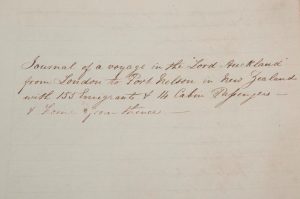 Journal of a voyage in the 'Lord Auckland'
from London to Port Nelson in New Zealand
with 155 Emigrants & 14 Cabin Passengers —
& home from thence —